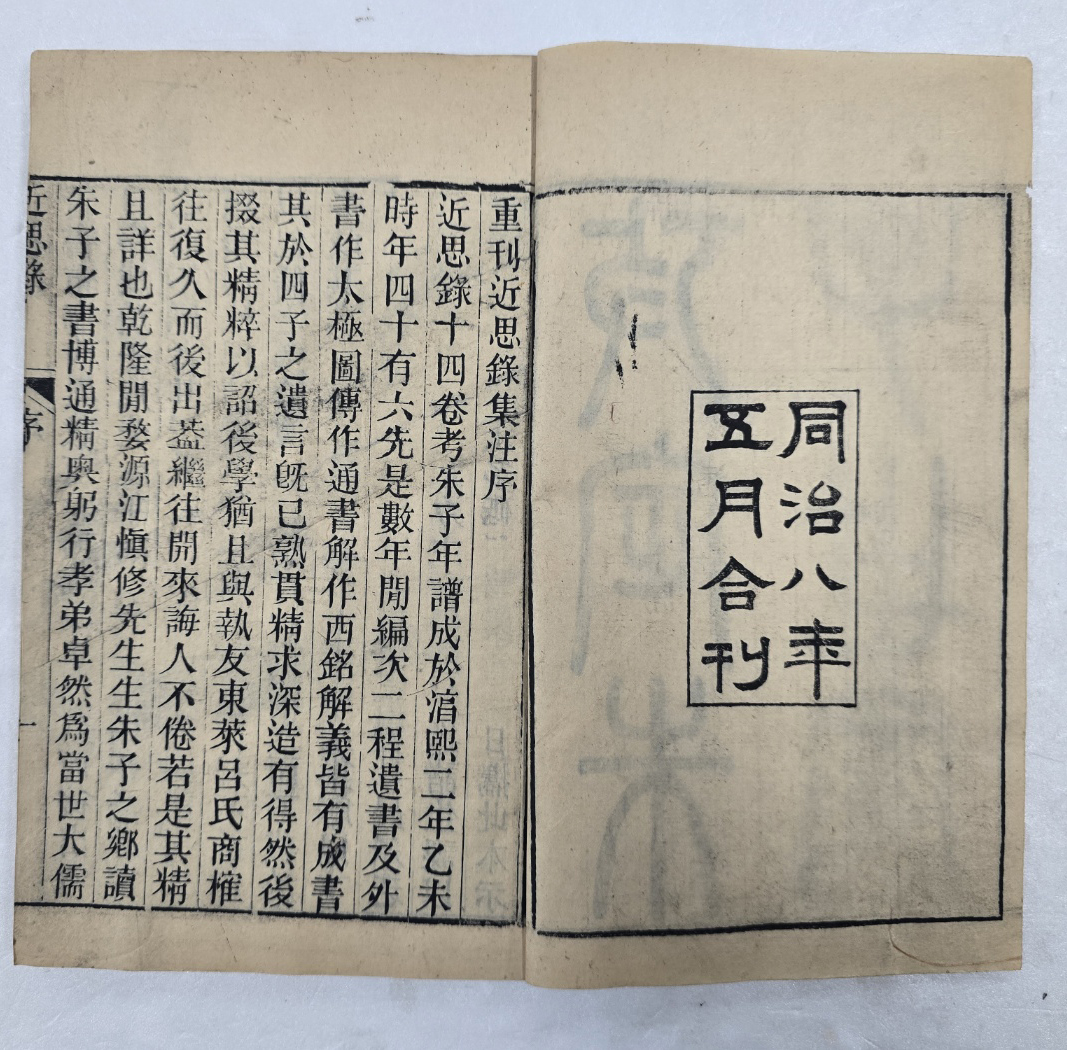 同治八年
五月合刊
重刊近思錄集注序
近思錄十四卷考朱子年譜成於淯熙二年乙未
時年四十有六先是數年閒編次二程遺書及外
書作太極圖傳作通書解作西銘解義皆有成書
其於四子之遺言旣已熟貫精求深造有得然後
掇其精粹以詔後學猶且與執友東萊呂氏商榷
往復久而後出葢繼往開來誨人不倦若是其精
且詳也乾隆閒婺源江愼修先生生朱子之鄉讀
朱子之書博通精奥躬行孝弟卓然爲當世大儒
近思錄
序
一